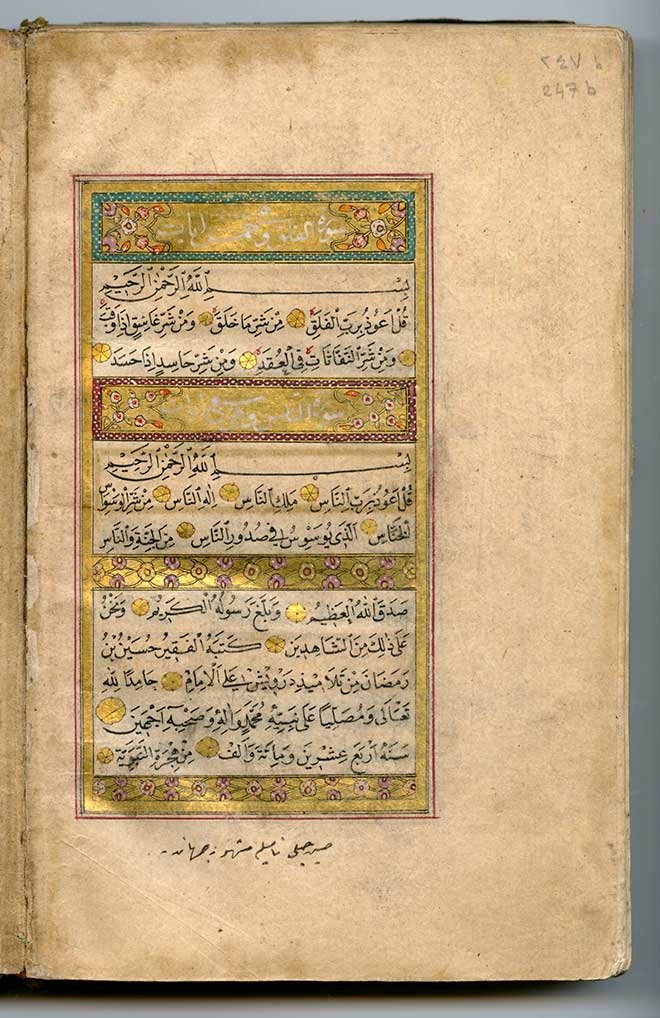 ٢٤٧ b
247 b
سورة الفلق خمس ايات
بِسْمِ اللّٰهِ الرَّحْمٰنِ الرَّحِيمِ
قُلْ اَعُوذُ بِرَبِّ الْفَلَقِ مِنْ شَرِّ مَا خَلَقَ وَمِنْ شَرِّ غَاسِقٍ اِذَا وَقَبَ
وَمِنْ شَرِّ النَّفَّاثَاتِ فِي الْعُقَدِ وَمِنْ شَرِّ حَاسِدٍ اِذَا حَسَدَ
سورة الناس وهى ايات
بِسْمِ اللّٰهِ الرَّحْمٰنِ الرَّحِيمِ
قُلْ اَعُوذُ بِرَبِّ النَّاسِ مَلِكِ النَّاسِ اِلٰهِ النَّاسِ مِنْ شَرِّ الْوَسْوَاسِ
الْخَنَّاسِ اَلَّذِي يُوَسْوِسُ فِي صُدُورِ النَّاسِ مِنَ الْجِنَّةِ وَالنَّاسِ
صَدَقَ اللّٰهُ الْعَظِيمُ وَبَلَّغَ رَسُولُهُ الْكَرِيمُ وَنَحْنُ
عَلَى ذٰلِكَ مِنَ الشَّاهِدِينَ كَتَبَهُ الْفَقِيرُ حُسَيْنُ بْنُ
رَمَضَانَ مِنْ تَلَامِيذِ دَرْوِيشْ عَلِي الْاِمَامِ حَامِدًا لِلّٰهِ
تَعَالَى وَمُصَلِّيًا عَلَى نَبِيِّهِ مُحَمَّدٍ وَاٰلِهِ وَصَحْبِهِ اَجْمَعِينَ
سَنَةَ اَرْبَعَ عِشْرِينَ وَمِائَةٍ وَاَلْفٍ مِنْ هِجْرَةِ النَّبَوِيَّةِ